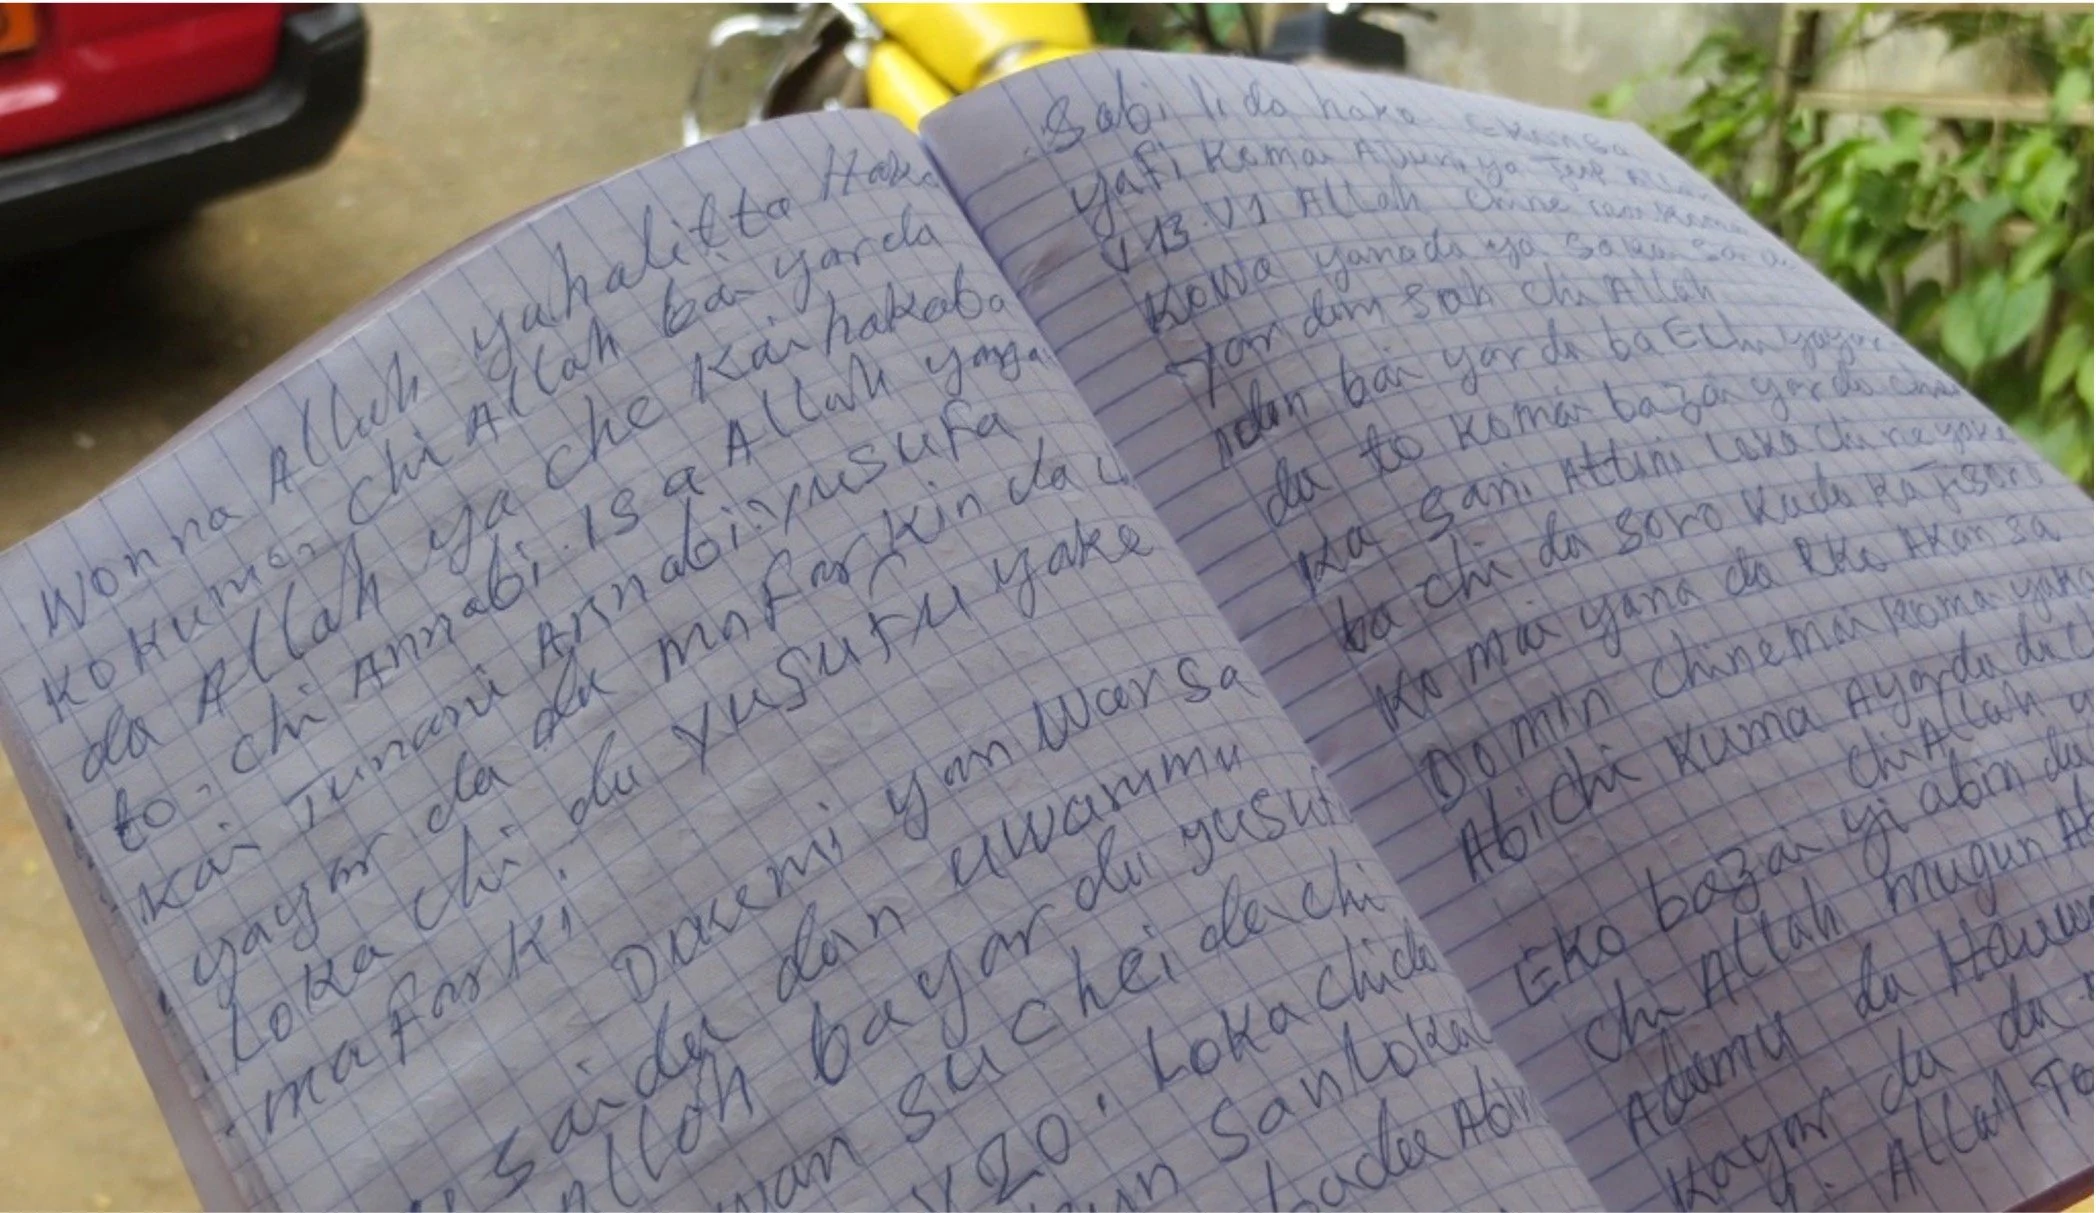 wonna Allah yahalitta Haka
kokuma chi Allah bai yarda
da Allah ya che Kai hakaba
to. chi Annabi. Isa Allah yanga
kai Tunani Annabi yusufa
yayar da da mafarkin da
Loka chi da yusufu yake
mafarki.
Dukemi yan Warsa
saida dan uwammu
Allah bayar da yusuf
suchei dachi
V20. Lokachida
San Loka
Abin
Sabi li da haka
yafi Kema Aduniya
V13.V1 Allah
Kowa yanada ya saka
yar dam sah chi Allah
idan bai yarda ba Elh yayar
da to komai bazai yarda
ka sani Attini Loka chi ne yake
ba chi da soro kada ka Jisoro
ko mai yana da Eko Akansa
Domin chinemai koma yaka
Abichi kuma Ayarda da
chi Allah
Eko bazai yi abin da
chi Allah mugun
Adamu da Hauwa
kayar da da
Allah To